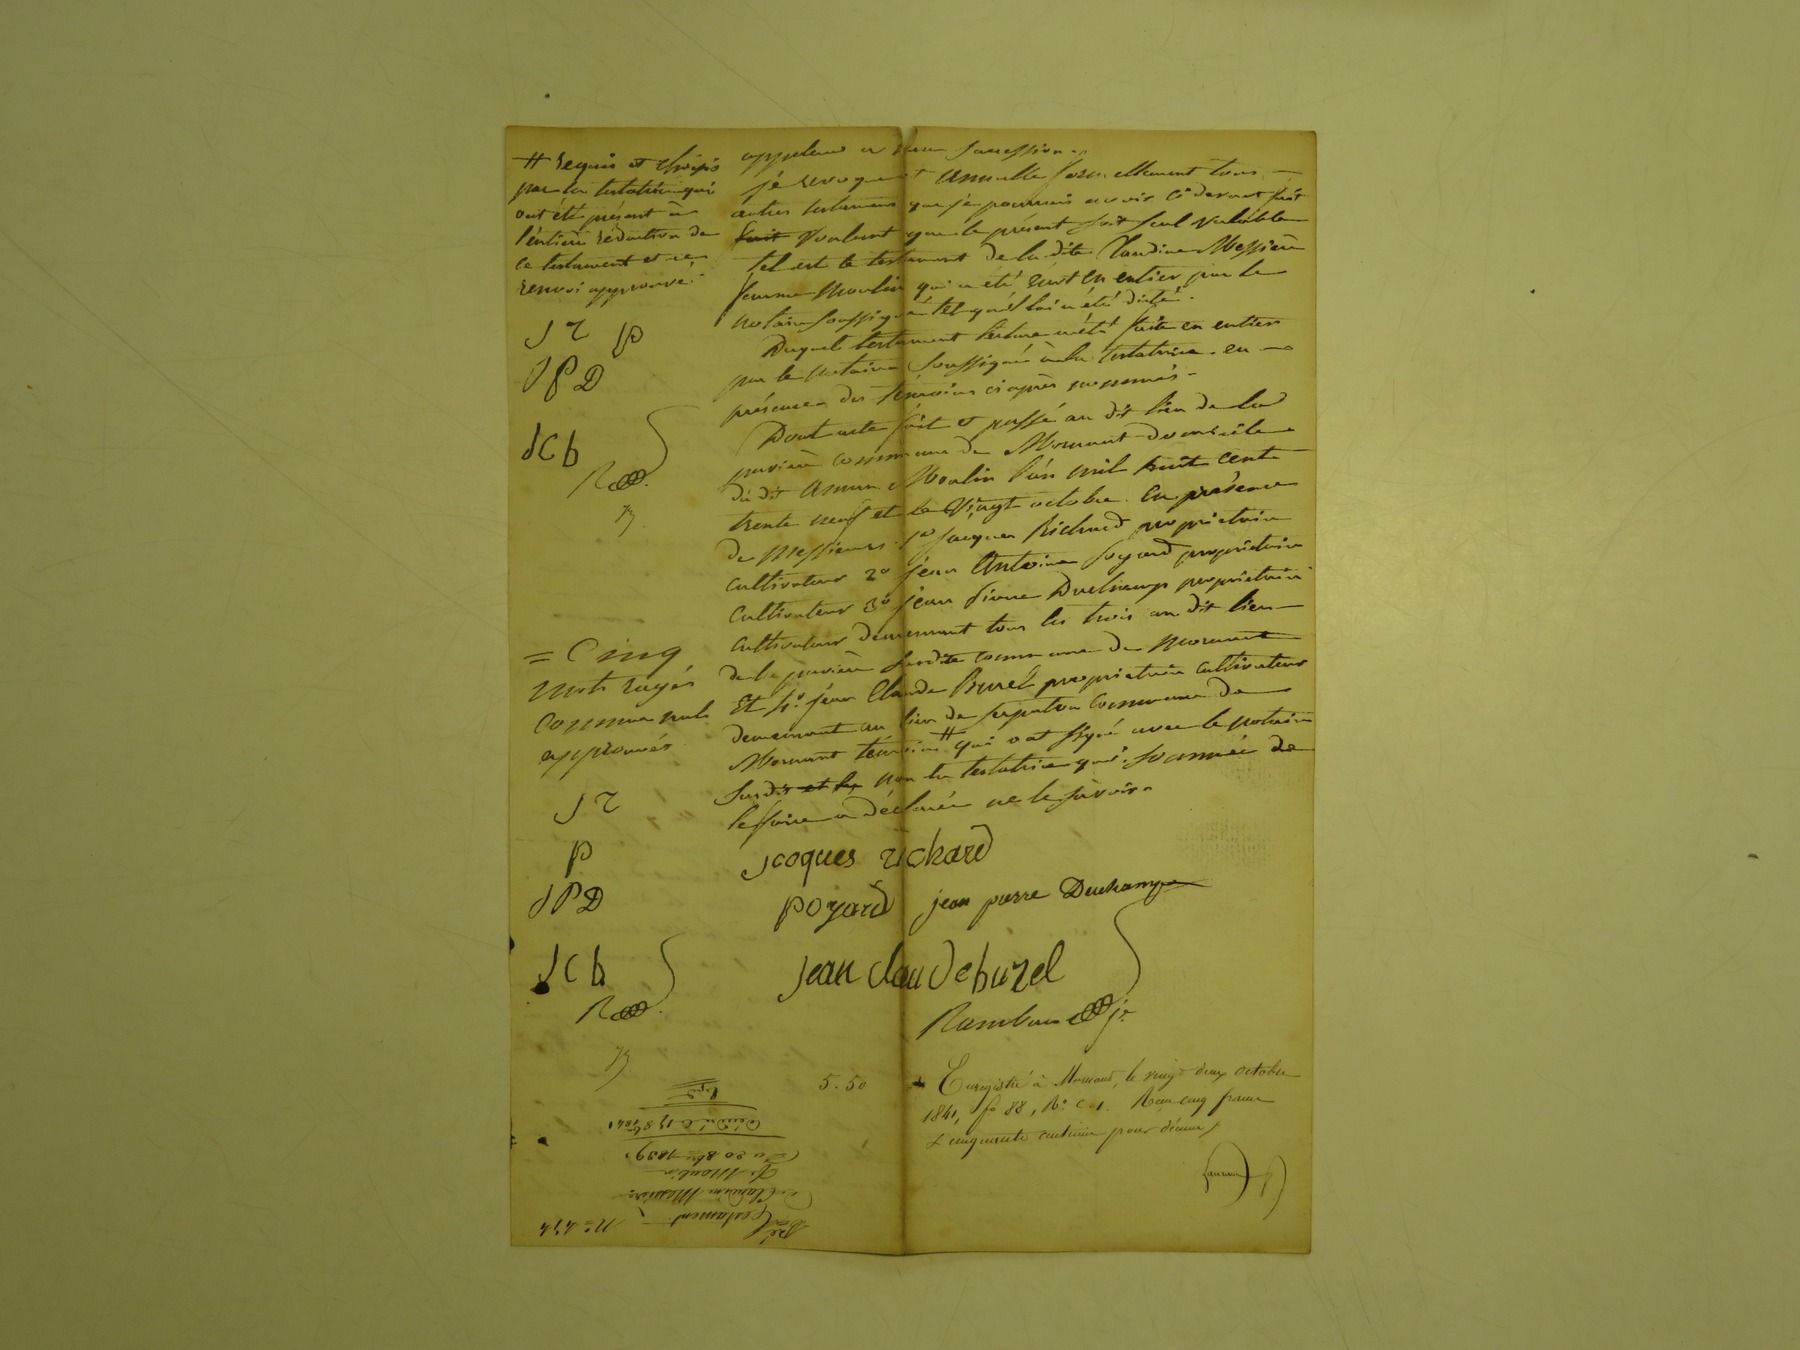 appeleront a ma succession.
je revoque et annulle formellement tous
autres testamens que je pourrois avoir ci devant fait
fait voulant que le présent soit seul valable
tel est le testament de la dite Claudine Messiere
femme Moulin qui a été écrit en entier par le
notaire soussigné tel qu'il lui a été dicté.
Duquel testament lecture a été faite en entier
par le notaire soussigné à la testatrice en
présence des témoins ci après nommés
Dont acte fait et passé au dit lieu de la
commune de Mornant domicile
du dit Moulin l'an mil huit cent
trente neuf et le vingt octobre. En présence
de Messieurs 1º Jacques Richard propriétaire
cultivateur 2º jean Antoine poyard propriétaire
cultivateur 3º jean Pierre Duchamp propriétaire
cultivateur demeurant tous les trois au dit lieu
de la susdite commune de Mornant
Et 4º jean Claude Burel propriétaire cultivateur
demeurant au lieu de commune de
Mornant témoins # qui ont signé avec le notaire
susdit et les non la testatrice qui sommée de
le faire a déclaré ne le savoir.
# requis et choisis
par la testatrice qui
ont été présent à
l'entière rédaction de
ce testament et ce
renvoi approuvé.
J r p
J P D
J C b
R
= Cinq
mots rayés
comme nuls
approuvés
J r
p
J P D
J C b
R
jacques richard
poyard jean pierre Duchamp
jean claude burel
Rambaud jr
5.50
Enregistré à Mornant, le vingt deux octobre
1841, fo 88, Rº C. 1. Reçu cinq francs
& cinquante centimes pour décime
Nº 474
Testament
de Claudine Messiere
fe Moulin
Du 20 8bre 1839